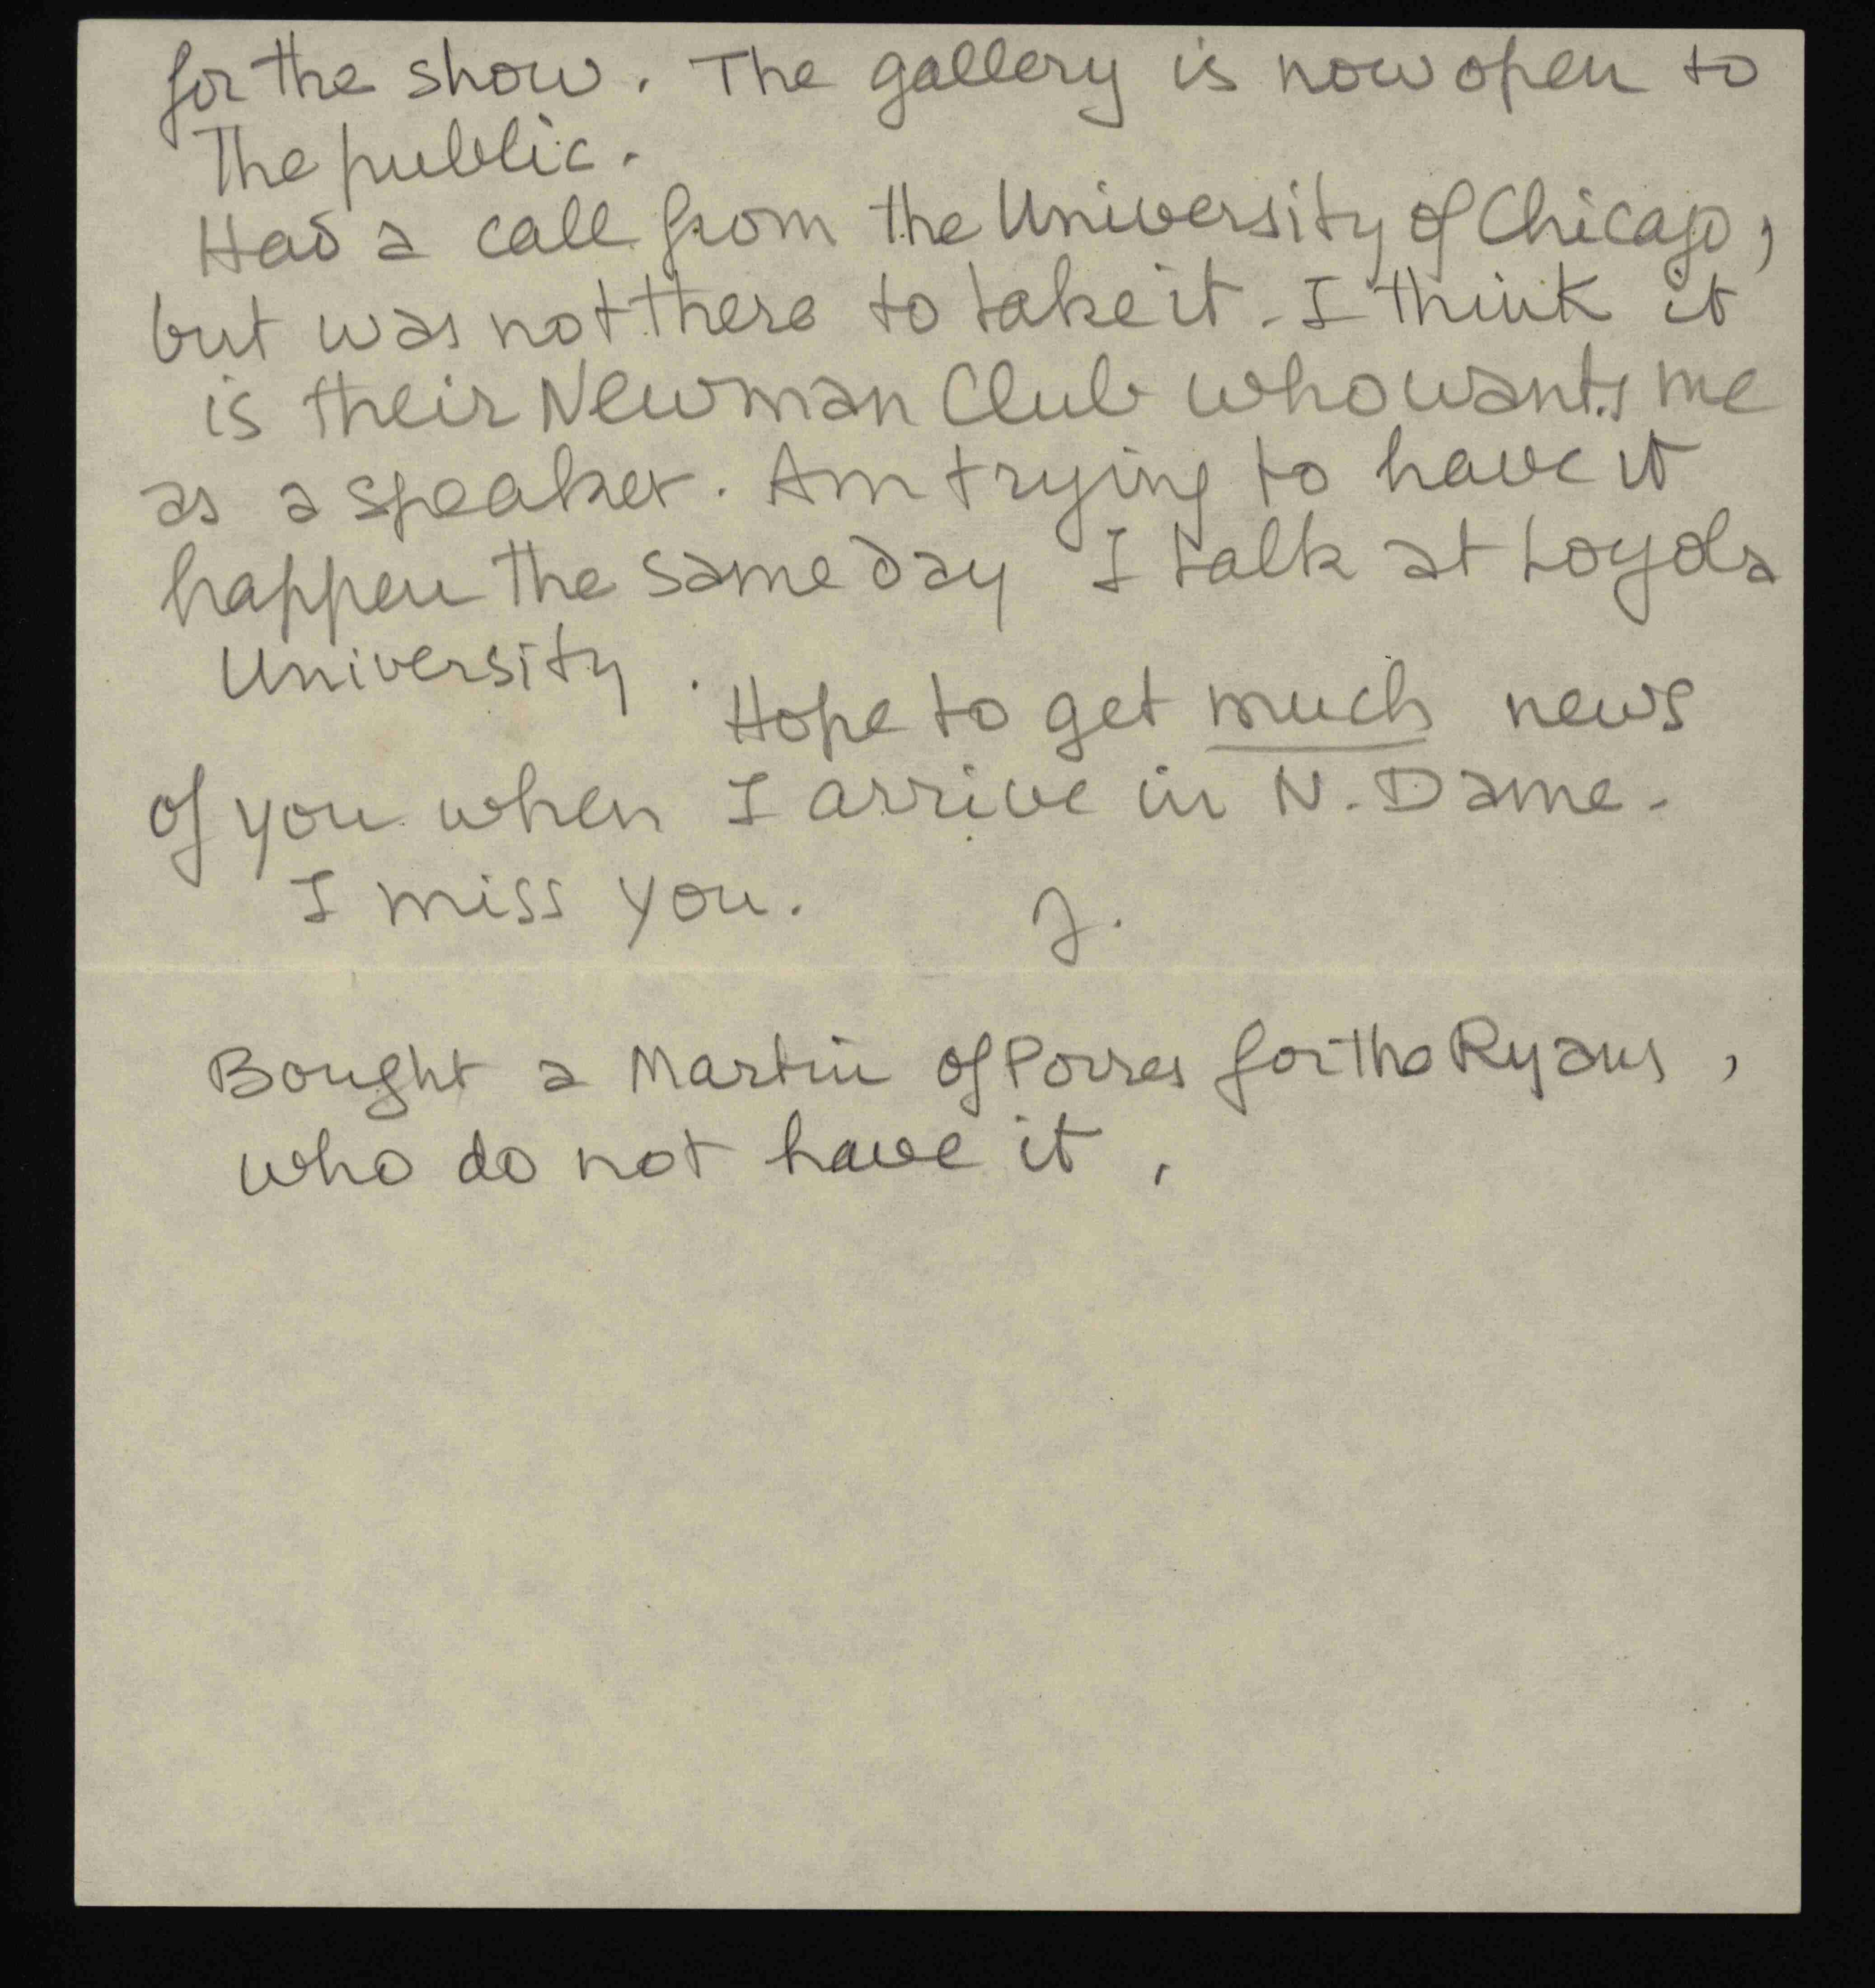 for the show. The gallery is now open to
the public.
Had a call from the University of Chicago,
but was not there to take it. I think it
is their Newman Club who wants me
as a speaker. Am trying to have it
happen the same day I talk at Loyola
University.
Hope to get much news
of you when I arrive in N. Dame.
I miss you. J.
Bought a Martin of Porres for the Ryans,
who do not have it.